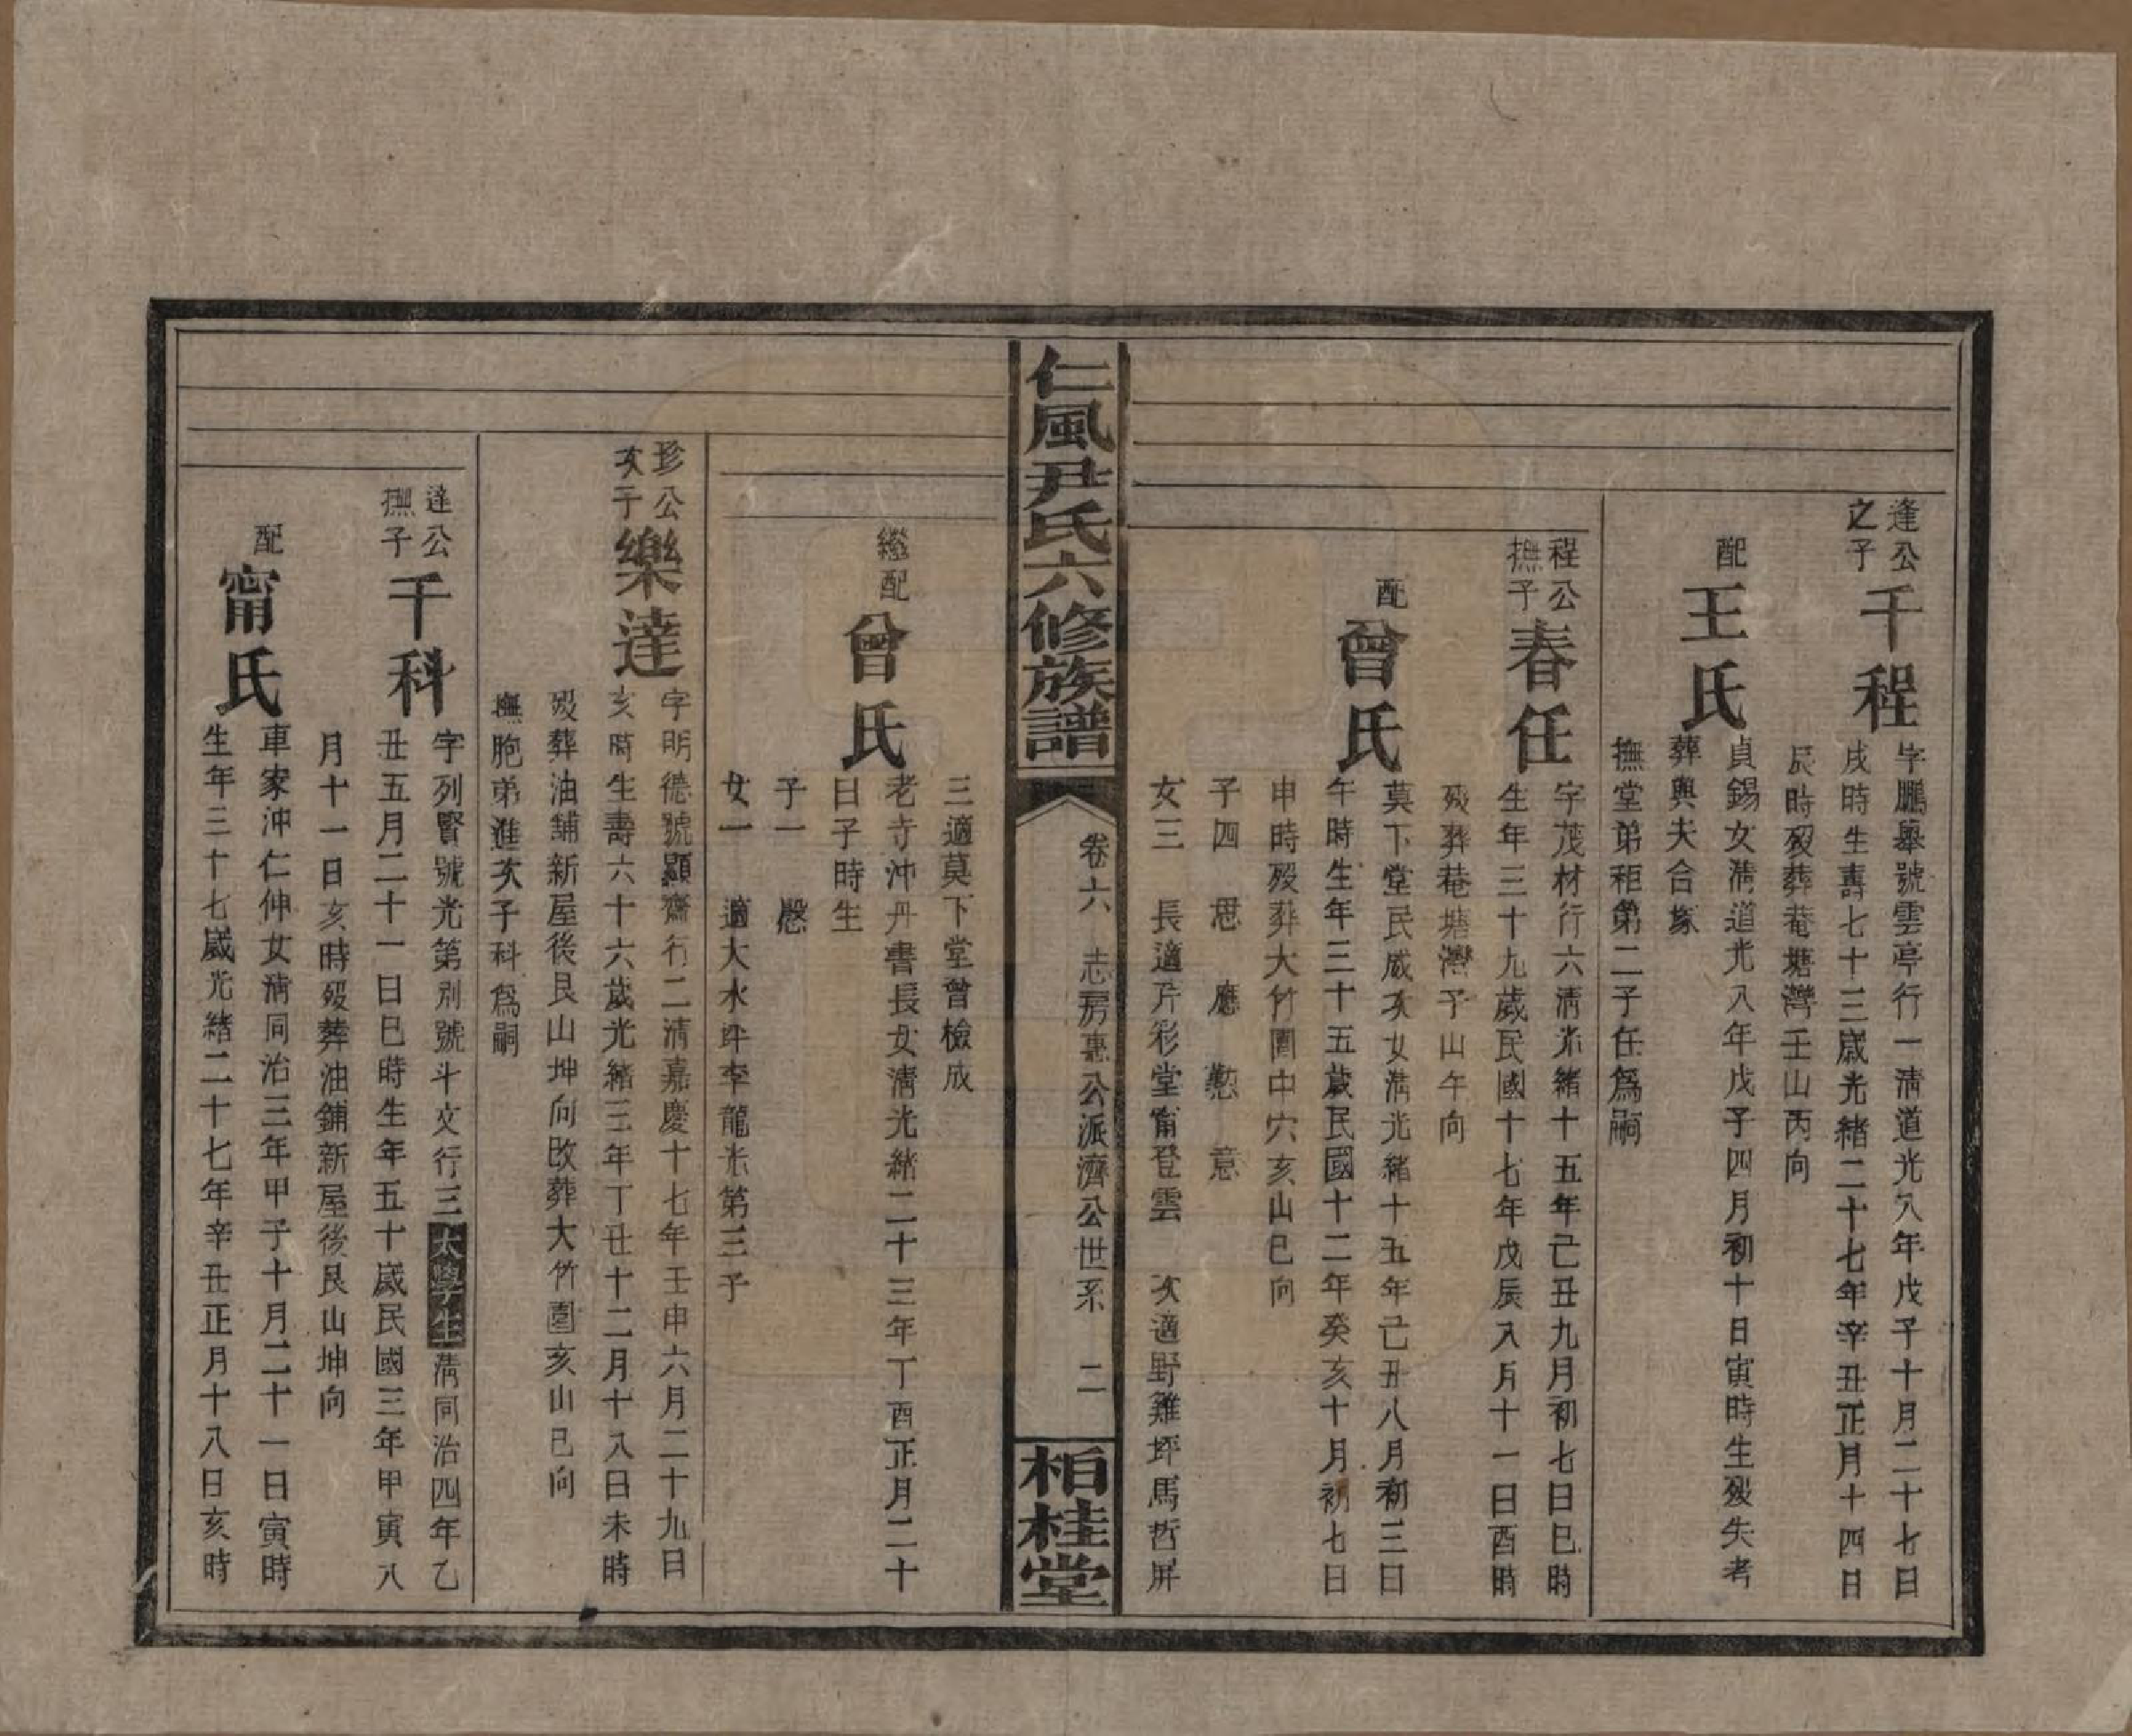 逢公
之子
千程
字鵬舉號雲亭行一清道光八年戊子十月二十七日
戌時生壽七十三歲光緒二十七年辛丑正月十四日
辰時歿葬菴塘灣壬山丙向
配
王氏
貞錫女清道光八年戊子四月初十日寅時生歿失考
葬與夫合冢
撫堂弟秬第二子任為嗣
程公
撫子
春任
字茂材行六清光緒十五年己丑九月初七日巳時
生年三十九歲民國十七年戊辰八月十一日酉時
歿葬菴塘灣子山午向
配
曾氏
莫下堂民威次女清光緒十五年己丑八月初三日
午時生年三十五歲民國十二年癸亥十月初七日
申時歿葬大竹園中穴亥山巳向
子四　思　應　懃　意
女三　長適片彩堂甯登雲　次適野雞坪馬哲屏
仁風尹氏六修族譜
卷六　志房惠公派濟公世系　二
栢桂堂
三適莫下堂曾檢成
繼配
曾氏
老寺沖丹書長女清光緒二十三年丁酉正月二十
日子時生
子一　慇
女一　適大水坪李龍光第三子
珍公
次子
樂達
字明德號顯齋行二清嘉慶十七年壬申六月二十九日
亥時生壽六十六歲光緒三年丁丑十二月十八日未時
歿葬油舖新屋後艮山坤向改葬大竹園亥山巳向
撫胞弟進次子科為嗣
達公
撫子
千科
字列賢號光第別號斗文行三太學生清同治四年乙
丑五月二十一日巳時生年五十歲民國三年甲寅八
月十一日亥時歿葬油鋪新屋後艮山坤向
配
甯氏
車家沖仁伸女清同治三年甲子十月二十一日寅時
生年三十七歲光緒二十七年辛丑正月十八日亥時